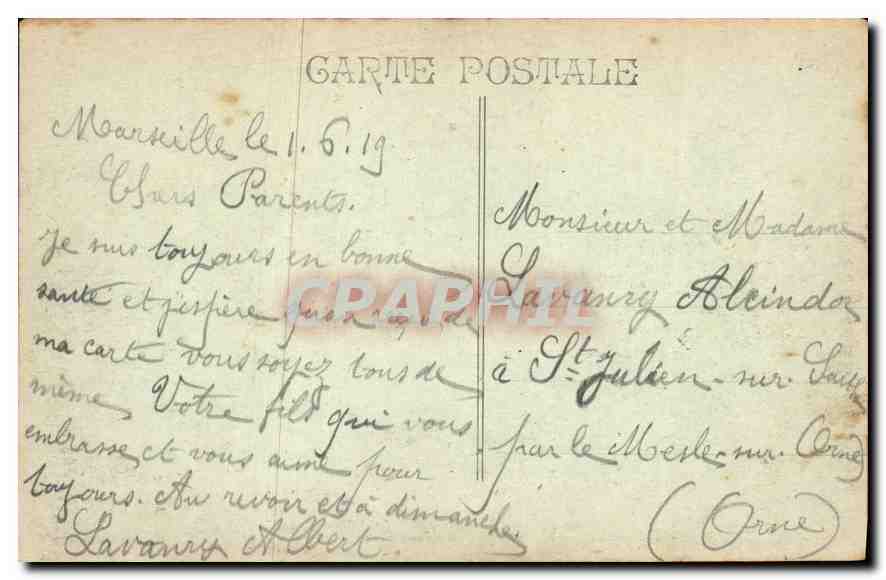 CARTE POSTALE
Marseille le 1.6.19
Chers Parents.
Je suis toujours en bonne
santé et j'espère qu'su reçu de
ma carte vous soyez tous de
même Votre fils qui vous
embrasse et vous aime pour
toujours. Au revoir et à dimanche.
Lavanry Albert.
Monsieur et Madame
Lavanry Alcindor
à St Julien-sur-Sarthe
par le Mesle-sur-(Orne)
(Orne)
CPAPHIL